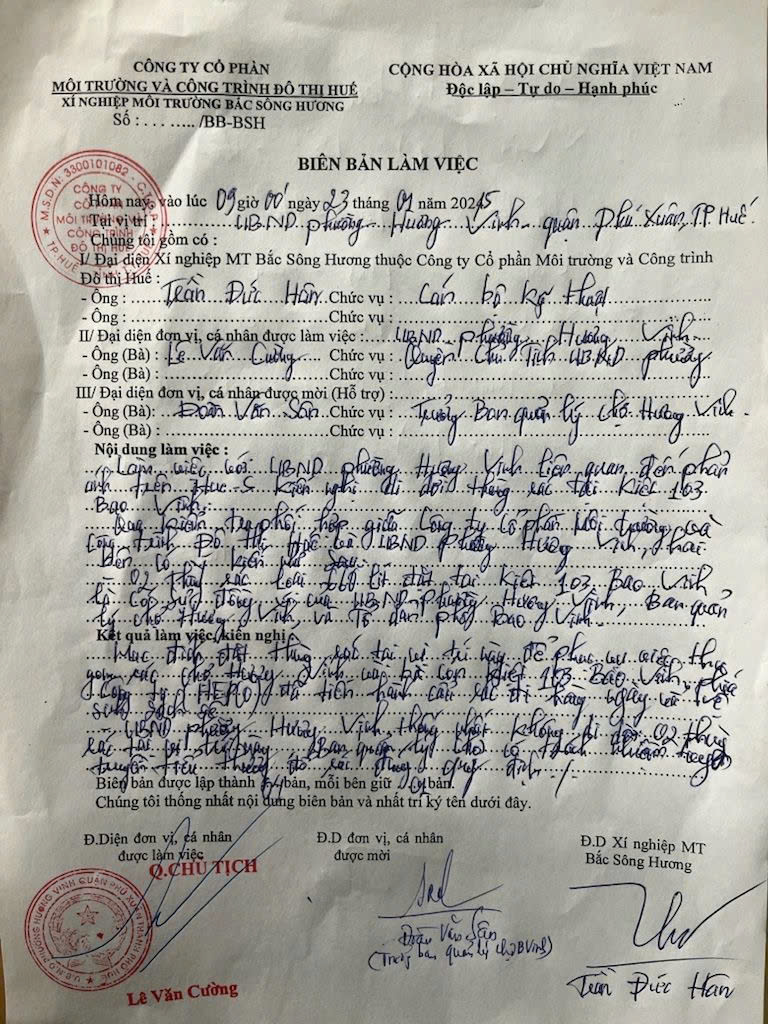 CÔNG TY CỔ PHẦN
MÔI TRƯỜNG VÀ CÔNG TRÌNH ĐÔ THỊ HUẾ
XÍ NGHIỆP MÔI TRƯỜNG BẮC SÔNG HƯƠNG
Số : . . . . .... /BB-BSH
CỘNG HÒA XÃ HỘI CHỦ NGHĨA VIỆT NAM
Độc lập – Tự do – Hạnh phúc
BIÊN BẢN LÀM VIỆC
M.S.D.N: 3300101082 - C.T.C.P
CÔNG TY
CỔ PHẦN
MÔI TRƯỜNG
CÔNG TRÌNH
ĐÔ THỊ HUẾ
Hôm nay, vào lúc 09 giờ 00' ngày 23 tháng 01 năm 2025
Tại vị trí : UBND phường Hương Vinh quận Phú Xuân, T.P Huế.
Chúng tôi gồm có :
I/ Đại diện Xí nghiệp MT Bắc Sông Hương thuộc Công ty Cổ phần Môi trường và Công trình
Đô thị Huế :
- Ông : Trần Đức Hân Chức vụ : Cán bộ kỹ thuật
- Ông : Chức vụ :
II/ Đại diện đơn vị, cá nhân được làm việc : UBND phường Hương Vinh
- Ông (Bà) : Lê Văn Cường Chức vụ : Quyền Chủ Tịch UBND phường
- Ông (Bà) : Chức vụ :
III/ Đại diện đơn vị, cá nhân được mời (Hỗ trợ) :
- Ông (Bà): Đoàn Văn Sân Chức vụ : Trưởng Ban quản lý chợ Hương Vinh
- Ông (Bà) : Chức vụ :
Nội dung làm việc :
Làm việc với UBND phường Hương Vinh liên quan đến phản
ánh trên Hue-S kiến nghị di dời thùng rác tại Kiệt 103
Bao Vinh.
Qua kiểm tra phối hợp giữa Công ty Cổ phần Môi trường và
Công trình Đô Thị Huế và UBND phường Hương Vinh, hai
bên có ý kiến như sau:
- 02 thùng rác loại 660 lít đặt tại kiệt 103 Bao Vinh
là có sự đồng ý của UBND phường Hương Vinh, Ban quản
lý chợ Hương Vinh, và Tổ dân phố Bao Vinh.
Kết quả làm việc, kiến nghị :
Mục đích đặt thùng rác tại vị trí này để phục vụ việc thu
gom rác chợ Hương Vinh và bà con kiệt 103 Bao Vinh, phía
Công ty (HEPCO) đã tiến hành cẩu rác đi hàng ngày và vệ
sinh sạch sẽ.
- UBND phường Hương Vinh thống nhất không di dời 02 thùng
rác tại vị trí này, Ban quản lý chợ có trách nhiệm tuyên
truyền tiểu thương đổ rác đúng quy định ./.
Biên bản được lập thành bản, mỗi bên giữ bản.
Chúng tôi thống nhất nội dung biên bản và nhất trí ký tên dưới đây.
Đ.Diện đơn vị, cá nhân
được làm việc
Q.CHỦ TỊCH
U.B.N.D PHƯỜNG HƯƠNG VINH QUẬN PHÚ XUÂN THÀNH PHỐ HUẾ
Lê Văn Cường
Đ.D đơn vị, cá nhân
được mời
Đoàn Văn Sân
(Trưởng ban quản lý chợ BVinh)
Đ.D Xí nghiệp MT
Bắc Sông Hương
Trần Đức Hân